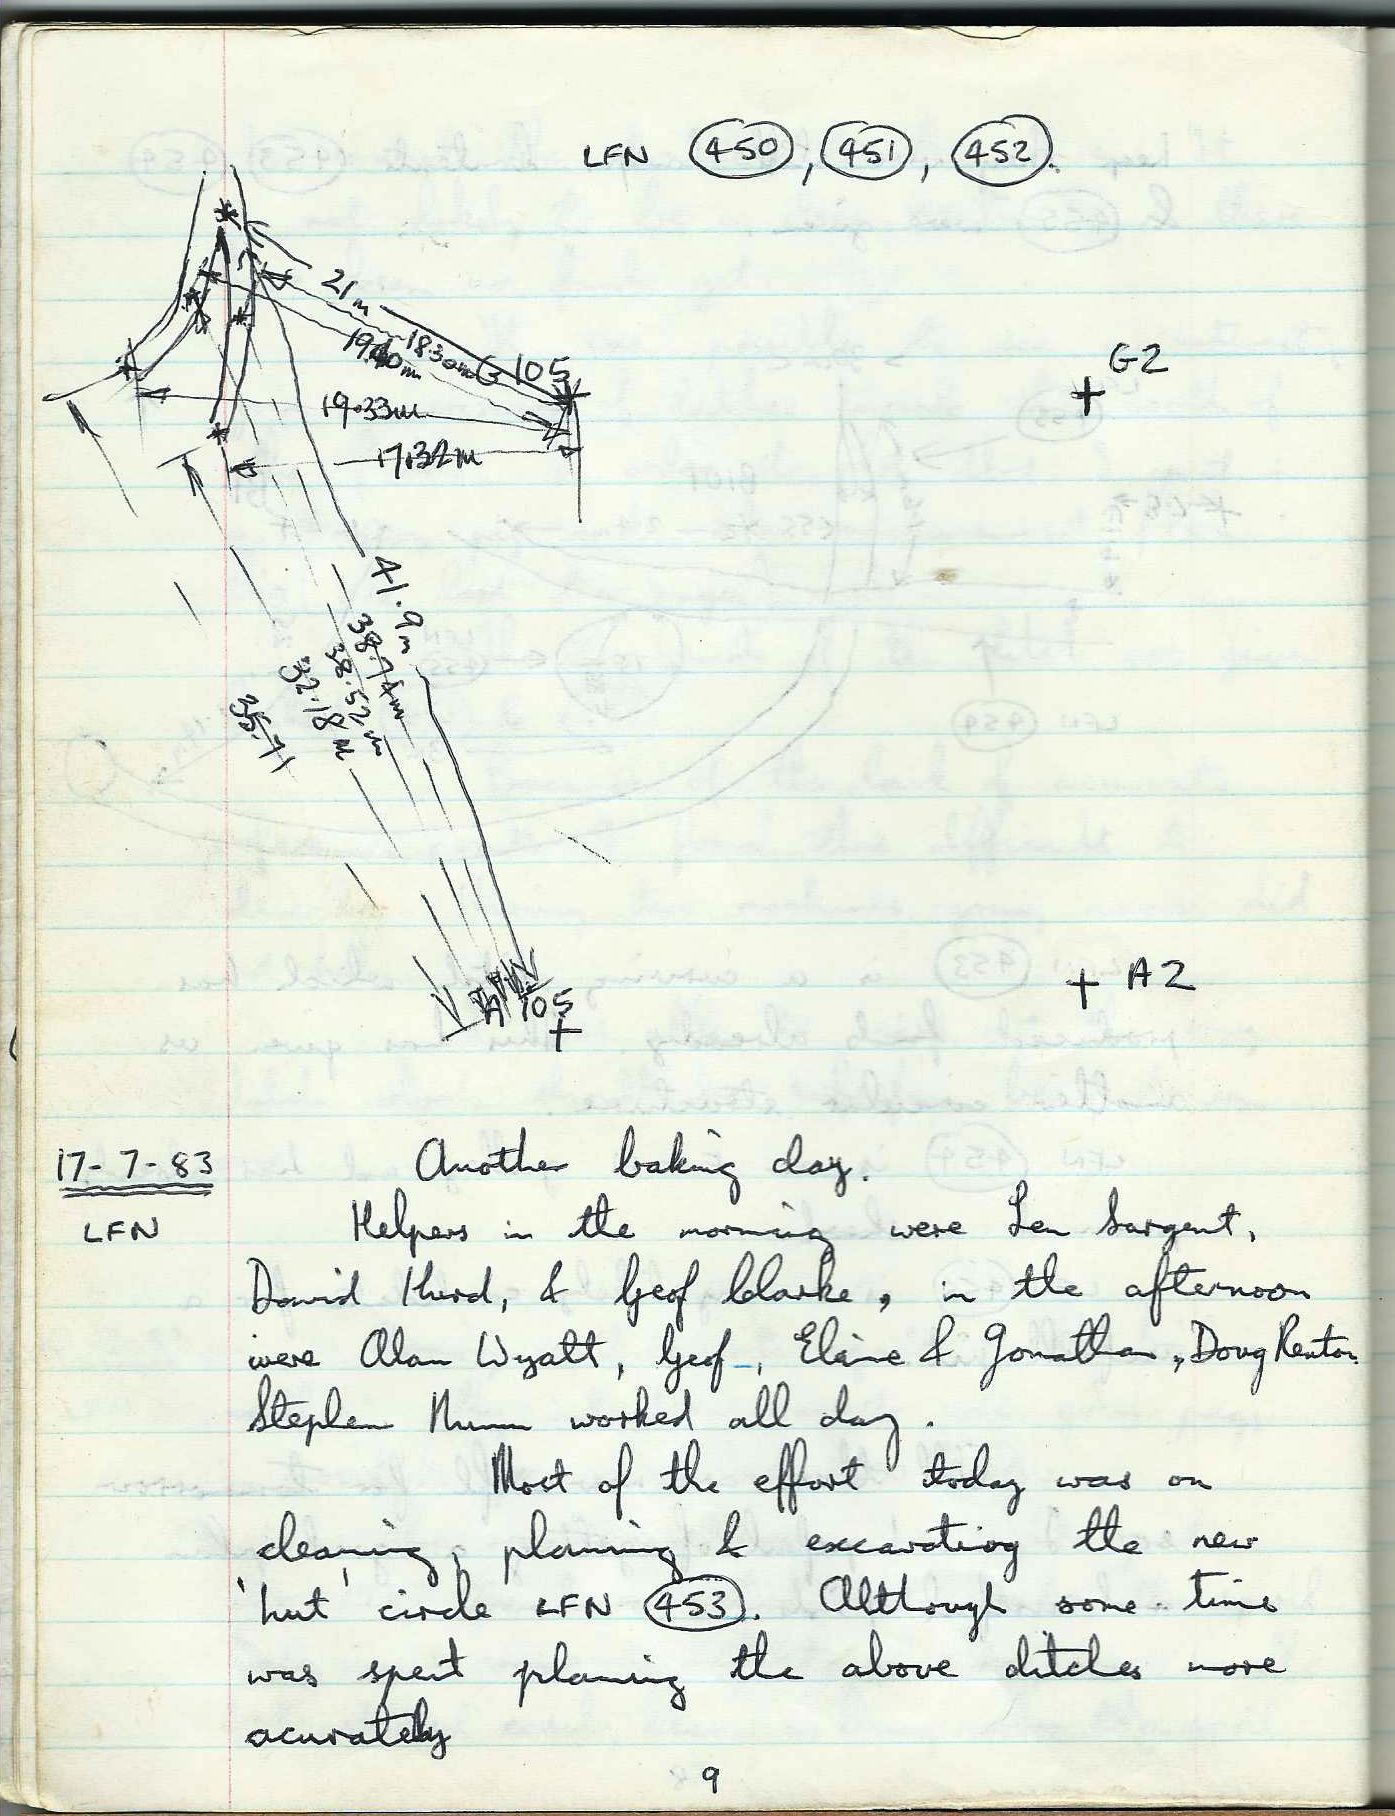 LFN 450, 451, 452.
21m
18.30m
G 105
19.33m
17.32m
G2
41.9m
38.74m
38.52m
32.18m
35.71
105
A2
17-7-83
LFN
Another baking day.
Helpers in the morning were Len Sargent,
David Hurd, & Geof Clarke, in the afternoon
were Alan Wyatt, Geof, Elaine & Jonathan, Doug Renton
Stephen Nunn worked all day.
Most of the effort today was on
cleaning, planning & excavating the new
'hut' circle LFN 453. Although some time
was spent planning the above ditches more
acurately
9